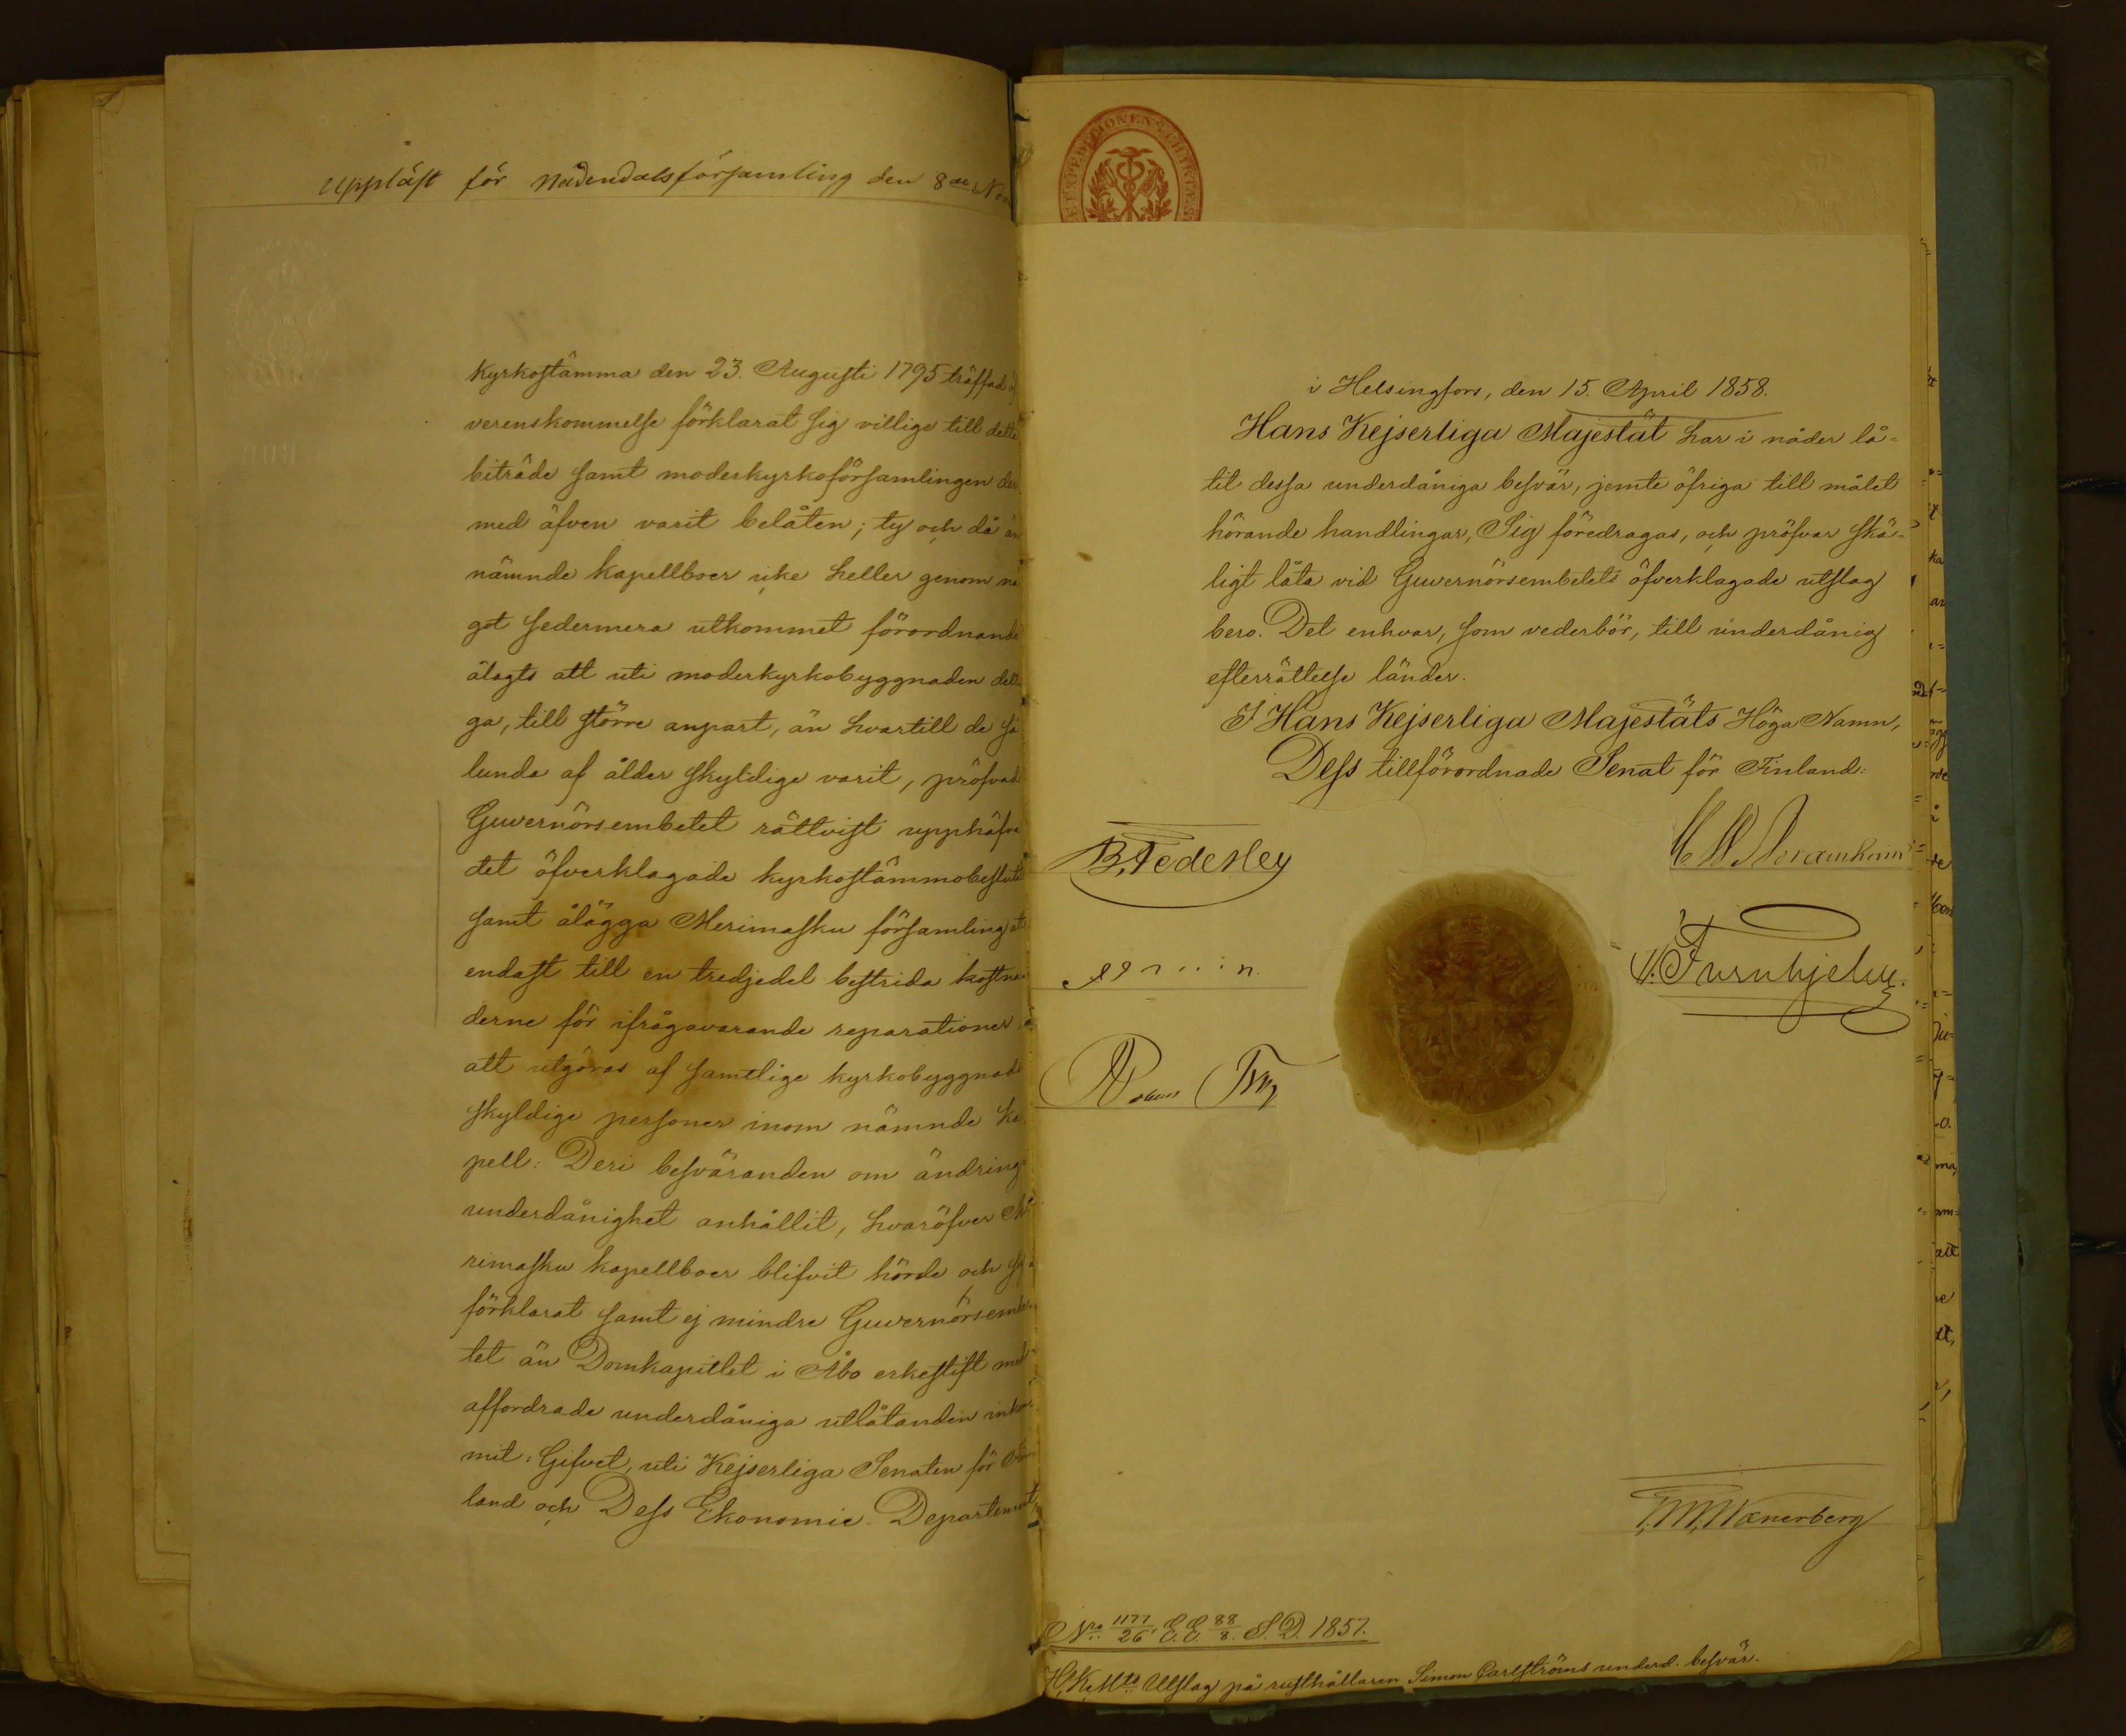 Uppläst för Nådendalsförsamling den 8de Nov
kyrkostämma den 23. Augusti 1795 träffad öf
verenskommelse förklarat sig villige till detta
biträde samt moderkyrkoförsamlingen der
med äfven varit belåten; ty och då
nämnde kapellboer icke heller genom nå
got sedermera utkommet förordnande
ålagts att uti moderkyrkobyggnaden delta
ga, till större anpart, än hvartill de så
lunda af ålder skyldige varit, pröfvade
Guvernörsembetet rättvist upphäfva
det öfverklagade kyrkostämmobeslutet
samt ålägga Merimasku församling att
endast till en tredjedel bestrida kostna
derne för ifrågavarande reparationer,
att utgöras af samtlige kyrkobyggnads
skyldige personer inom nämnde ka
pell: Deri besväranden om ändring
underdånighet anhållit, hvaröfver Me
rimasku kapellboer blifvit hörde och sig
förklarat samt ej mindre Guvernörsembe
tet än Domkapitlet i Åbo erkestift med
affordrade underdåniga utlåtanden inkom
mit: Gifvet, uti Kejserliga Senaten för Fin
land och Dess Ekonomie-Departement,
EXPEDITIONEN
i Helsingfors, den 15. April 1858.
Hans Kejserliga Majestät har i nåder lå-
tit dessa underdåniga besvär, jemte öfriga till målet
hörande handlingar, Sig föredragas, och pröfvar skä-
ligt låta vid Guvernörsembetets öfverklagade utslag
bero. Det enhvar, som vederbör, till underdånig
efterrättelse länder.
I Hans Kejserliga Majestäts Höga Namn,
Dess tillförordnade Senat för Finland:
B. Federley
H. Furuhjelm.
Wænerberg
No 1177/26. E.E. 88/8. S.D. 1857.
H.K.Mts Utslag på rusthållaren Simon Carlströms underd. besvär.